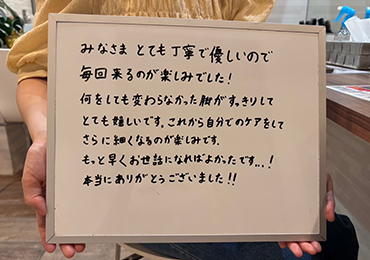 みなさま とても丁寧で優しいので
毎回来るのが楽しみでした!
何をしても変わらなかった脚がすっきりして
とても嬉しいです。これから自分でのケアをして
さらに細くなるのが楽しみです。
もっと早くお世話になればよかったです...!
本当にありがとうございました!!